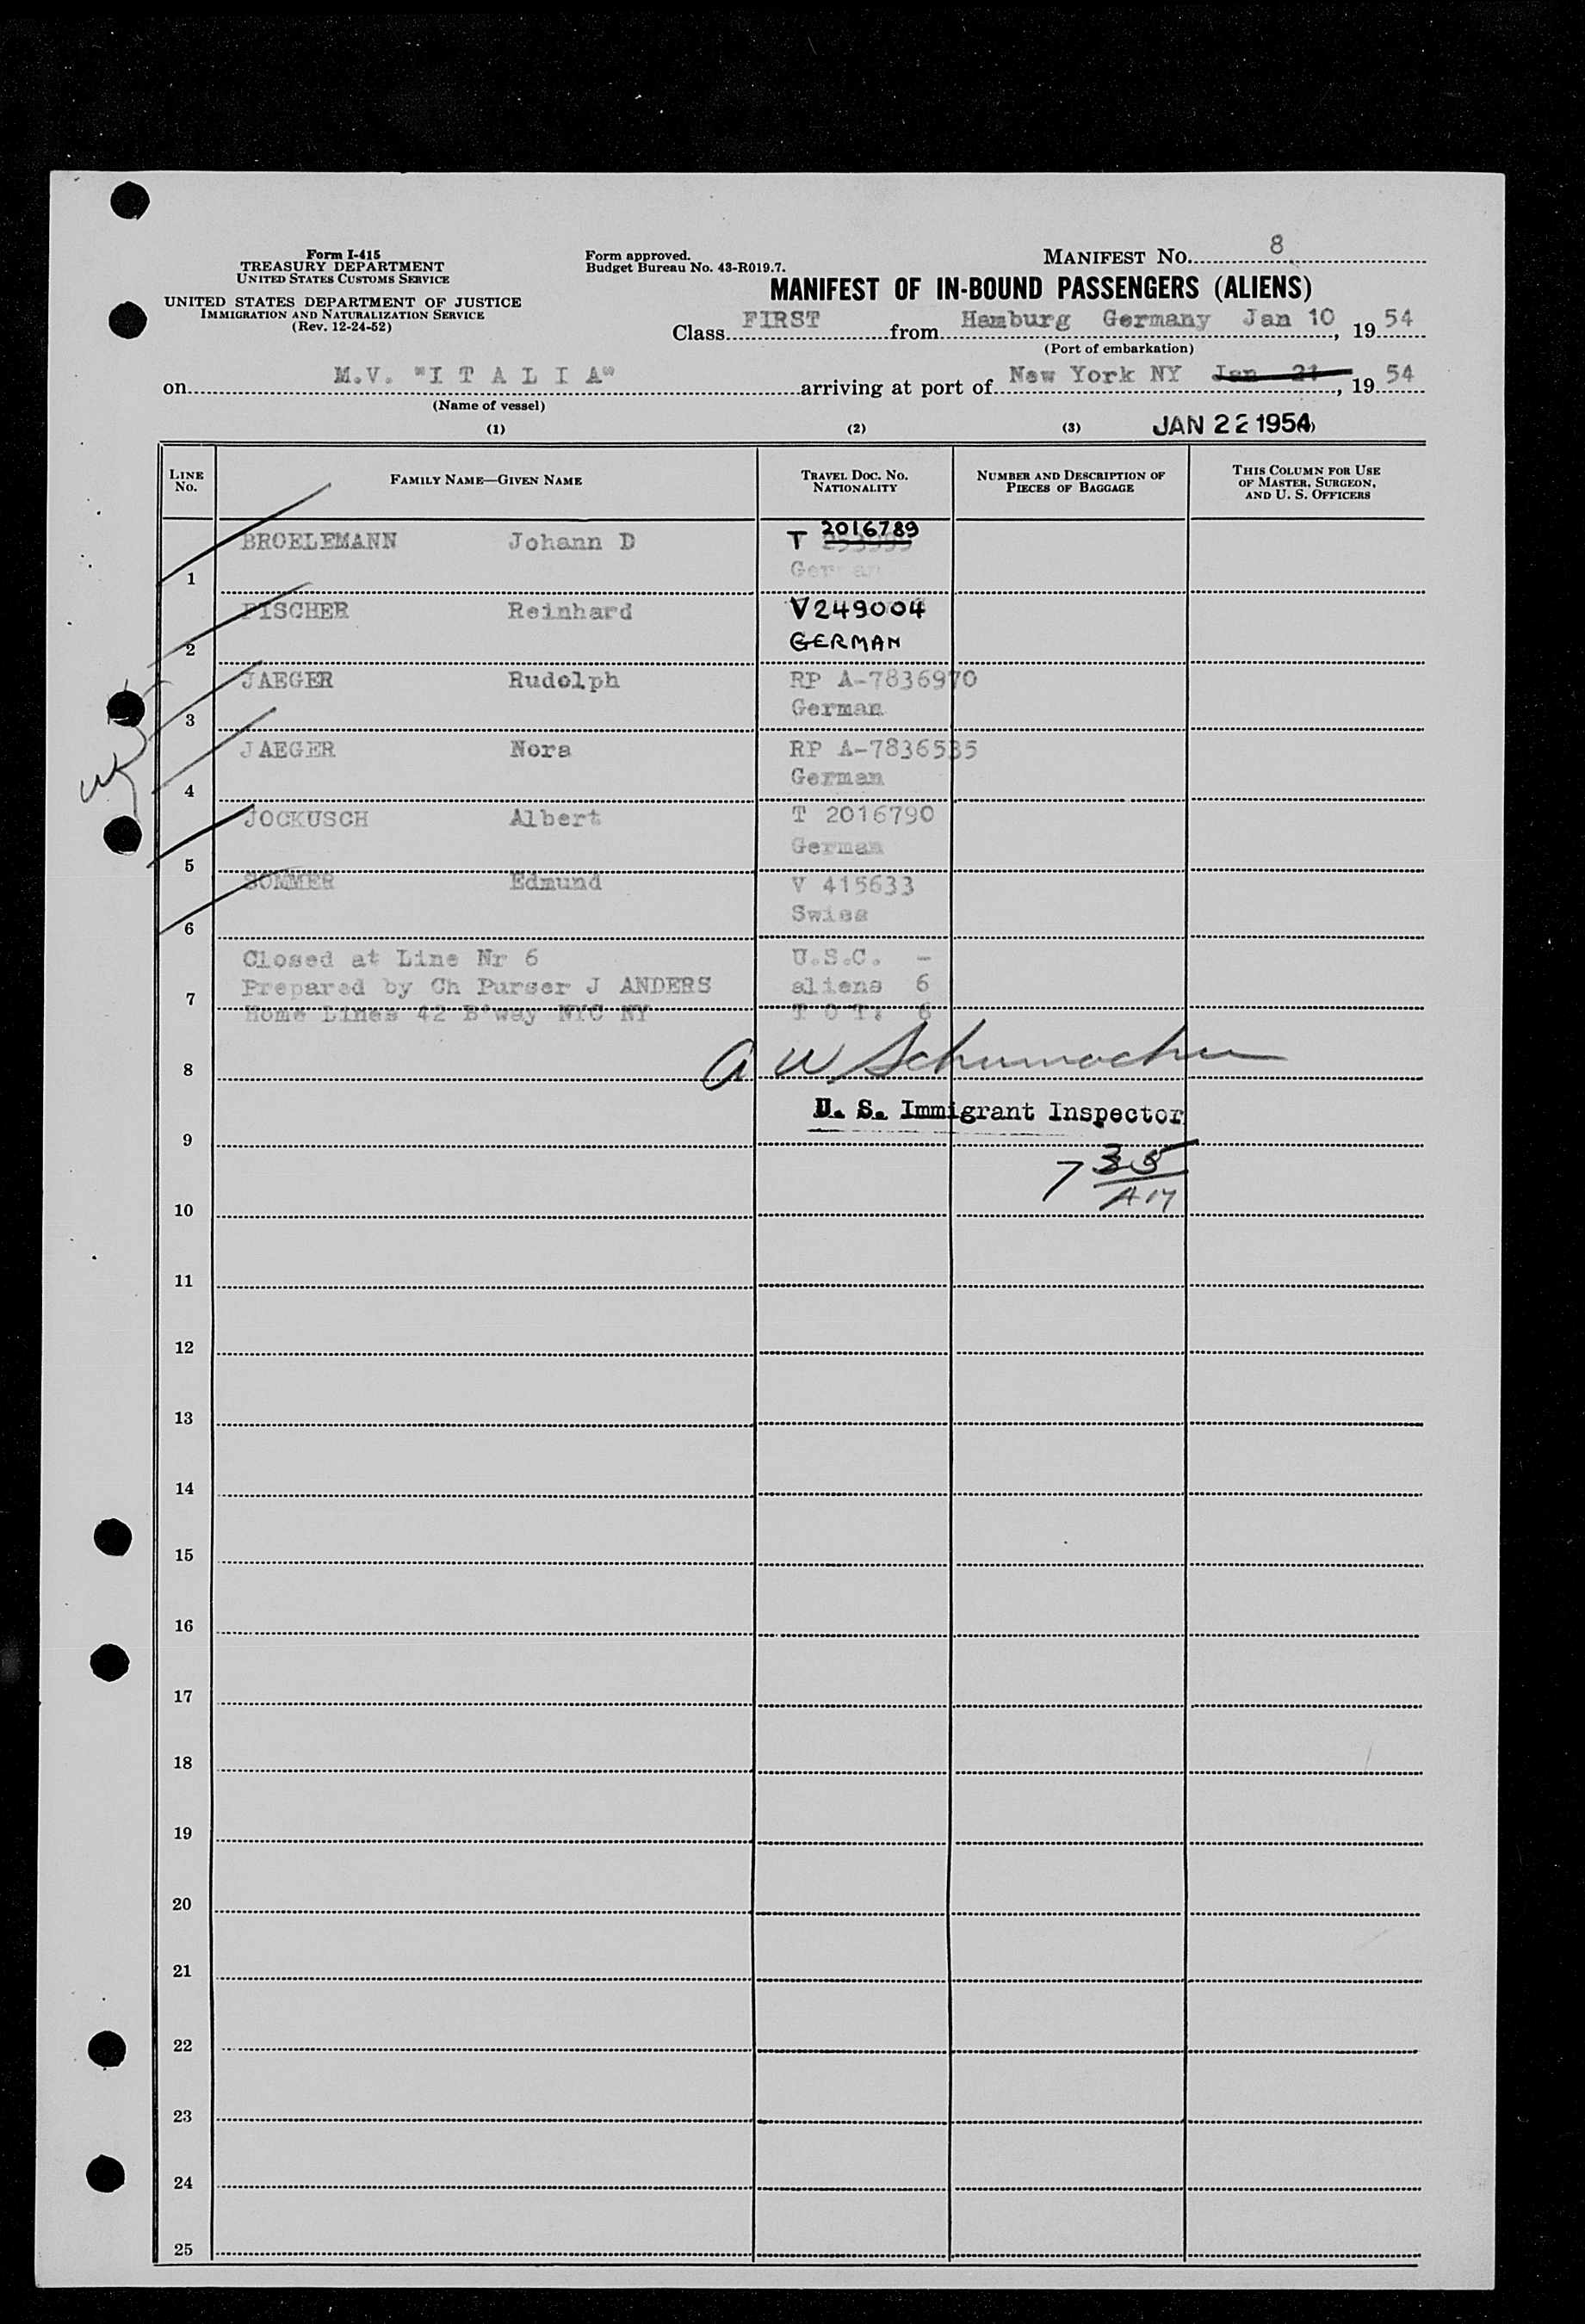 Form I-415
TREASURY DEPARTMENT
UNITED STATES CUSTOMS SERVICE
UNITED STATES DEPARTMENT OF JUSTICE
IMMIGRATION AND NATURALIZATION SERVICE
(Rev. 12-24-52)
Form approved.
Budget Bureau No. 43-R019.7.
MANIFEST NO. 8
MANIFEST OF IN-BOUND PASSENGERS (ALIENS)
Class FIRST from Hamburg Germany Jan 10, 1954
(Port of embarkation)
on M.V. "I T A L I A" arriving at port of New York NY Jan 21, 1954
(Name of vessel)
(1) (2) (3) JAN 22 1954
LINE NO. FAMILY NAME—GIVEN NAME TRAVEL DOC. NO. NATIONALITY NUMBER AND DESCRIPTION OF PIECES OF BAGGAGE THIS COLUMN FOR USE OF MASTER, SURGEON, AND U. S. OFFICERS
1 BROELEMANN Johann D T 2016789
German
2 FISCHER Reinhard V249004
GERMAN
3 JAEGER Rudolph RP A-7836970
German
4 JAEGER Nora RP A-7836535
German
5 JOCKUSCH Albert T 2016790
German
6 SOMMER Edmund V 415633
Swiss
Closed at Line Nr 6 U.S.C. -
7 Prepared by Ch Purser J ANDERS aliens 6
Home Lines 42 B'way NYC NY T O T: 6
8 A W Schumacher
U. S. Immigrant Inspector
9
7 35
AM
10
11
12
13
14
15
16
17
18
19
20
21
22
23
24
25